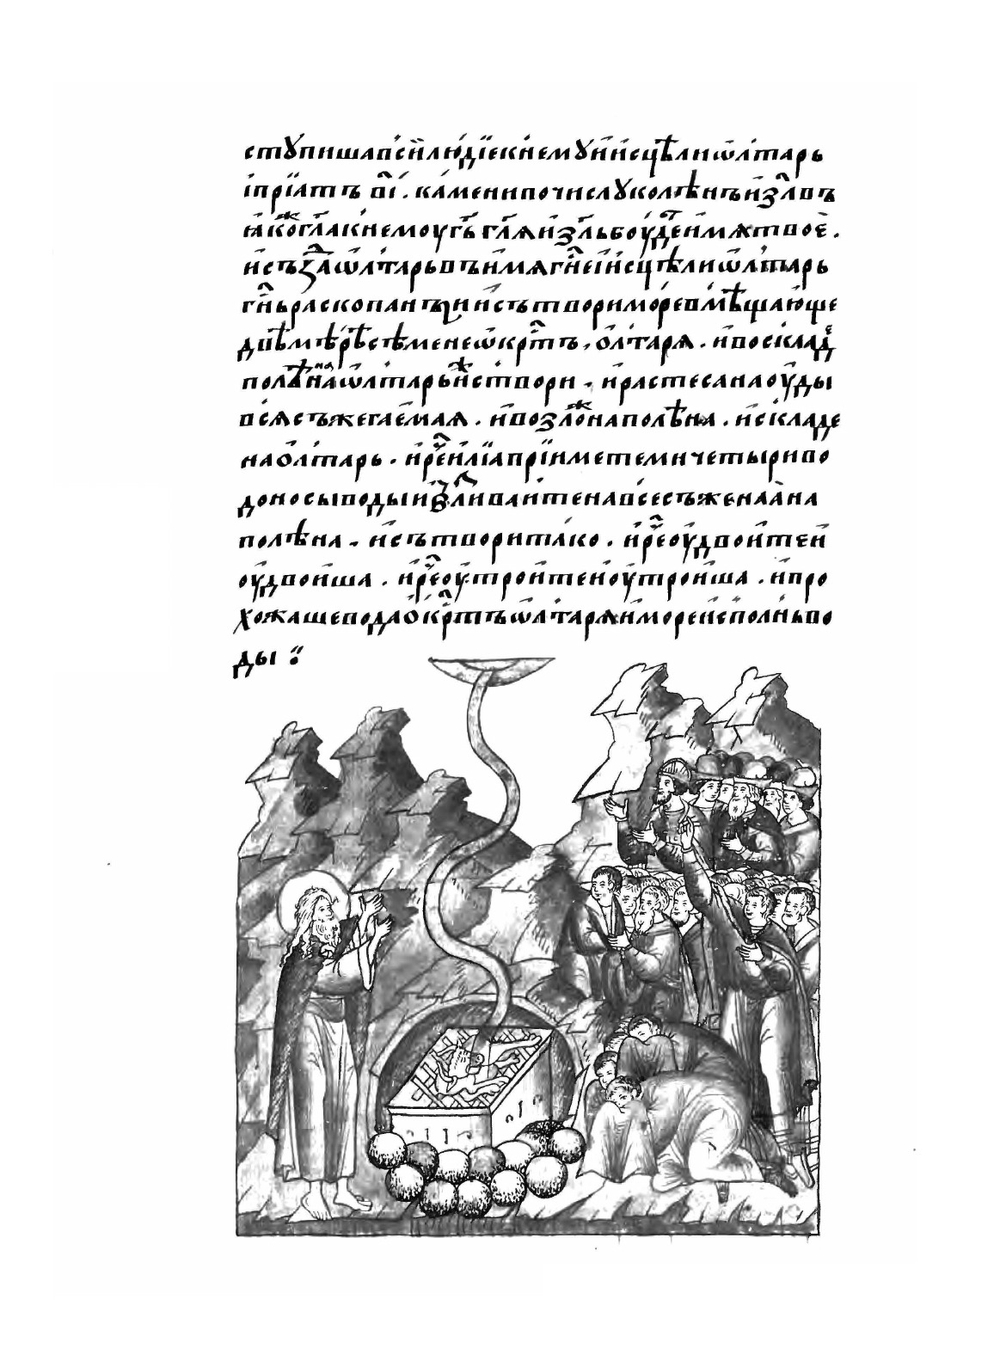 ступишавсилюдїекнемуиисцѣлиѡлтарь
їпрїятъ вı҃ . каменипочислуколѣнъизл҃въ
ꙗкожг҃лакнемоугь҃ гл҃яиз҃льбоудетимятвое .
исъзд҃аѡлтарьвъимягн҃еиисцѣлиѡлтарь
гн҃ьраскопаныиисътвориморевмѣщающе
двѣмѣрѣсѣменеѡкрт҃ъ ѡлтаря . ивоскладе
полѣнанаѡлтарьижеством . ирастесанаоуды
всясъжегаемая . ивозложинаполѣна . искладе
наолтарь . ире҃илїапрїиметемичетыриво
доносыводыивзливаитенавсесъженаана
полѣна . исътворитако . ире҃оудвоитеи
оудвоиша . ире҃оутроитеиоутроиша . ипро
хожашеводаокрт҃ъѡлтаряимореисполниво
ды